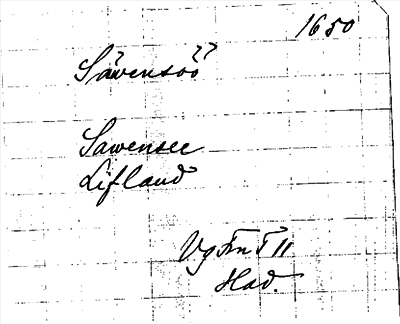 1650
Säwensöö
Sawensee
Lifland
Vg Fm T 11
Had.